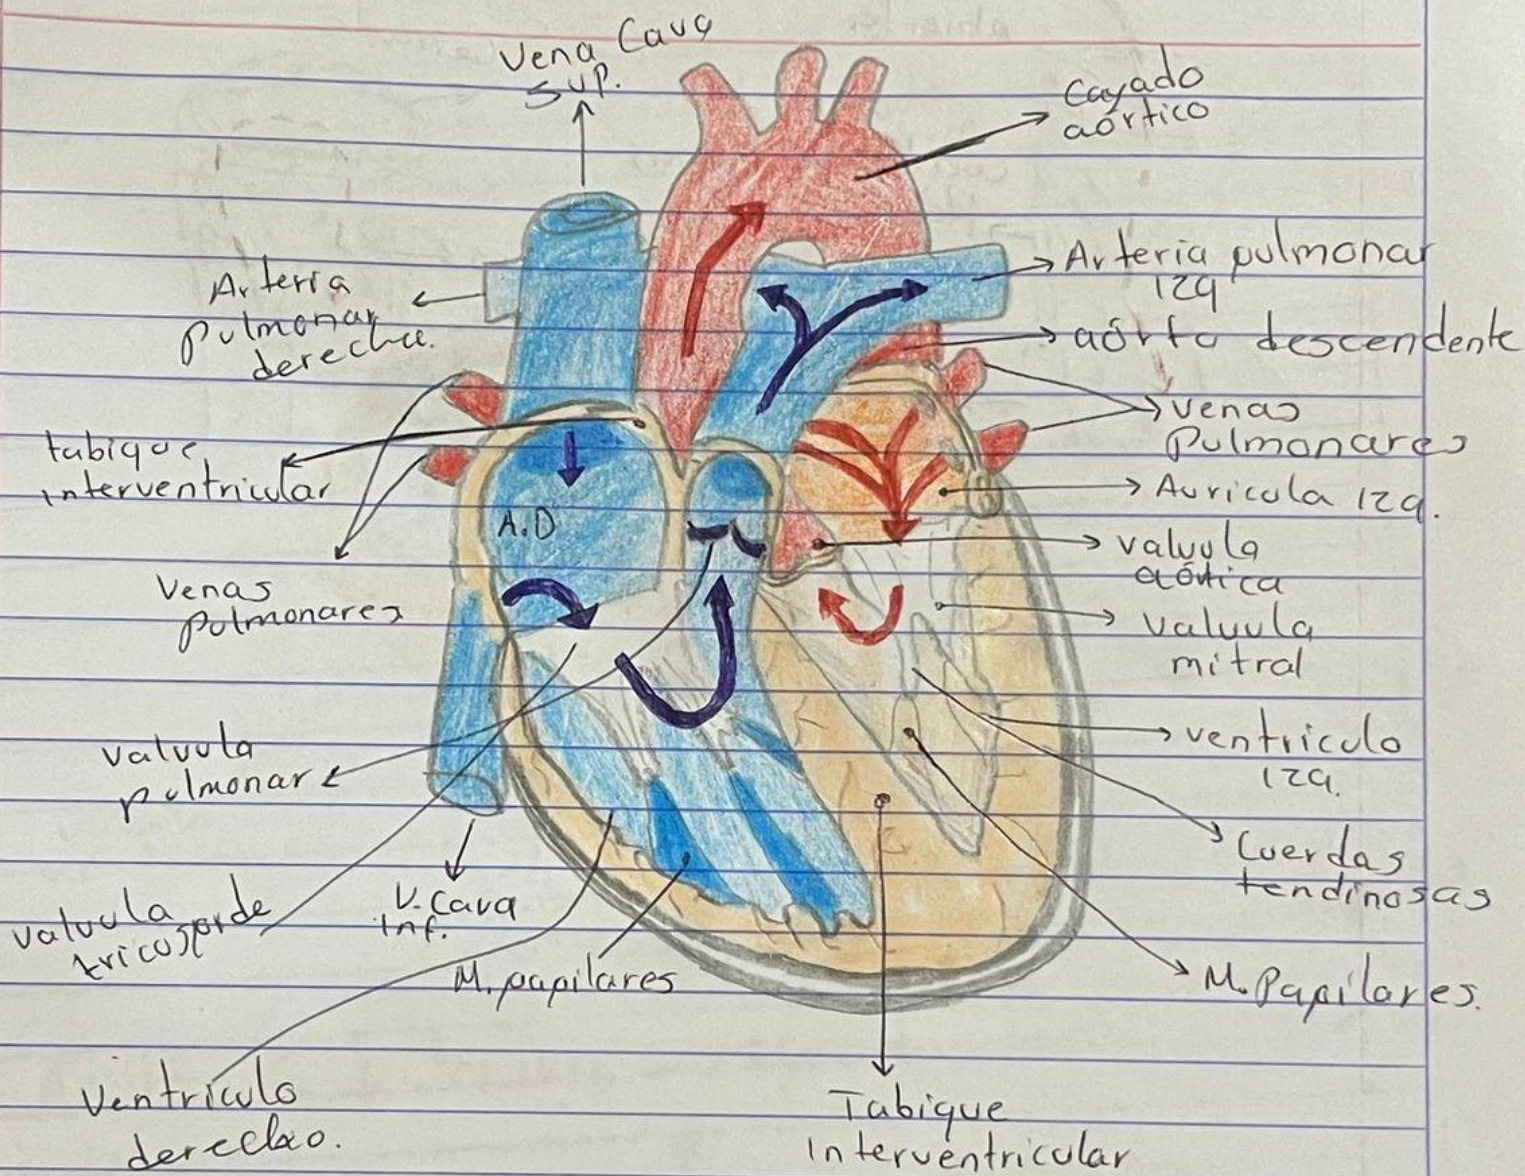 Vena Cava
Sup.
Cayado
aórtico
Arteria
pulmonar
derecha.
Arteria pulmonar
izq
aórta descendente
venas
Pulmonares
tabique
interventricular
A.D
Auricula izq.
valvula
aórtica
Venas
pulmonares
valvula
mitral
valvula
pulmonar
ventriculo
izq.
Cuerdas
tendinosas
V. Cava
Inf.
valvula
tricuspide
M. papilares
M. Papilares.
Ventriculo
derecho.
Tabique
interventricular